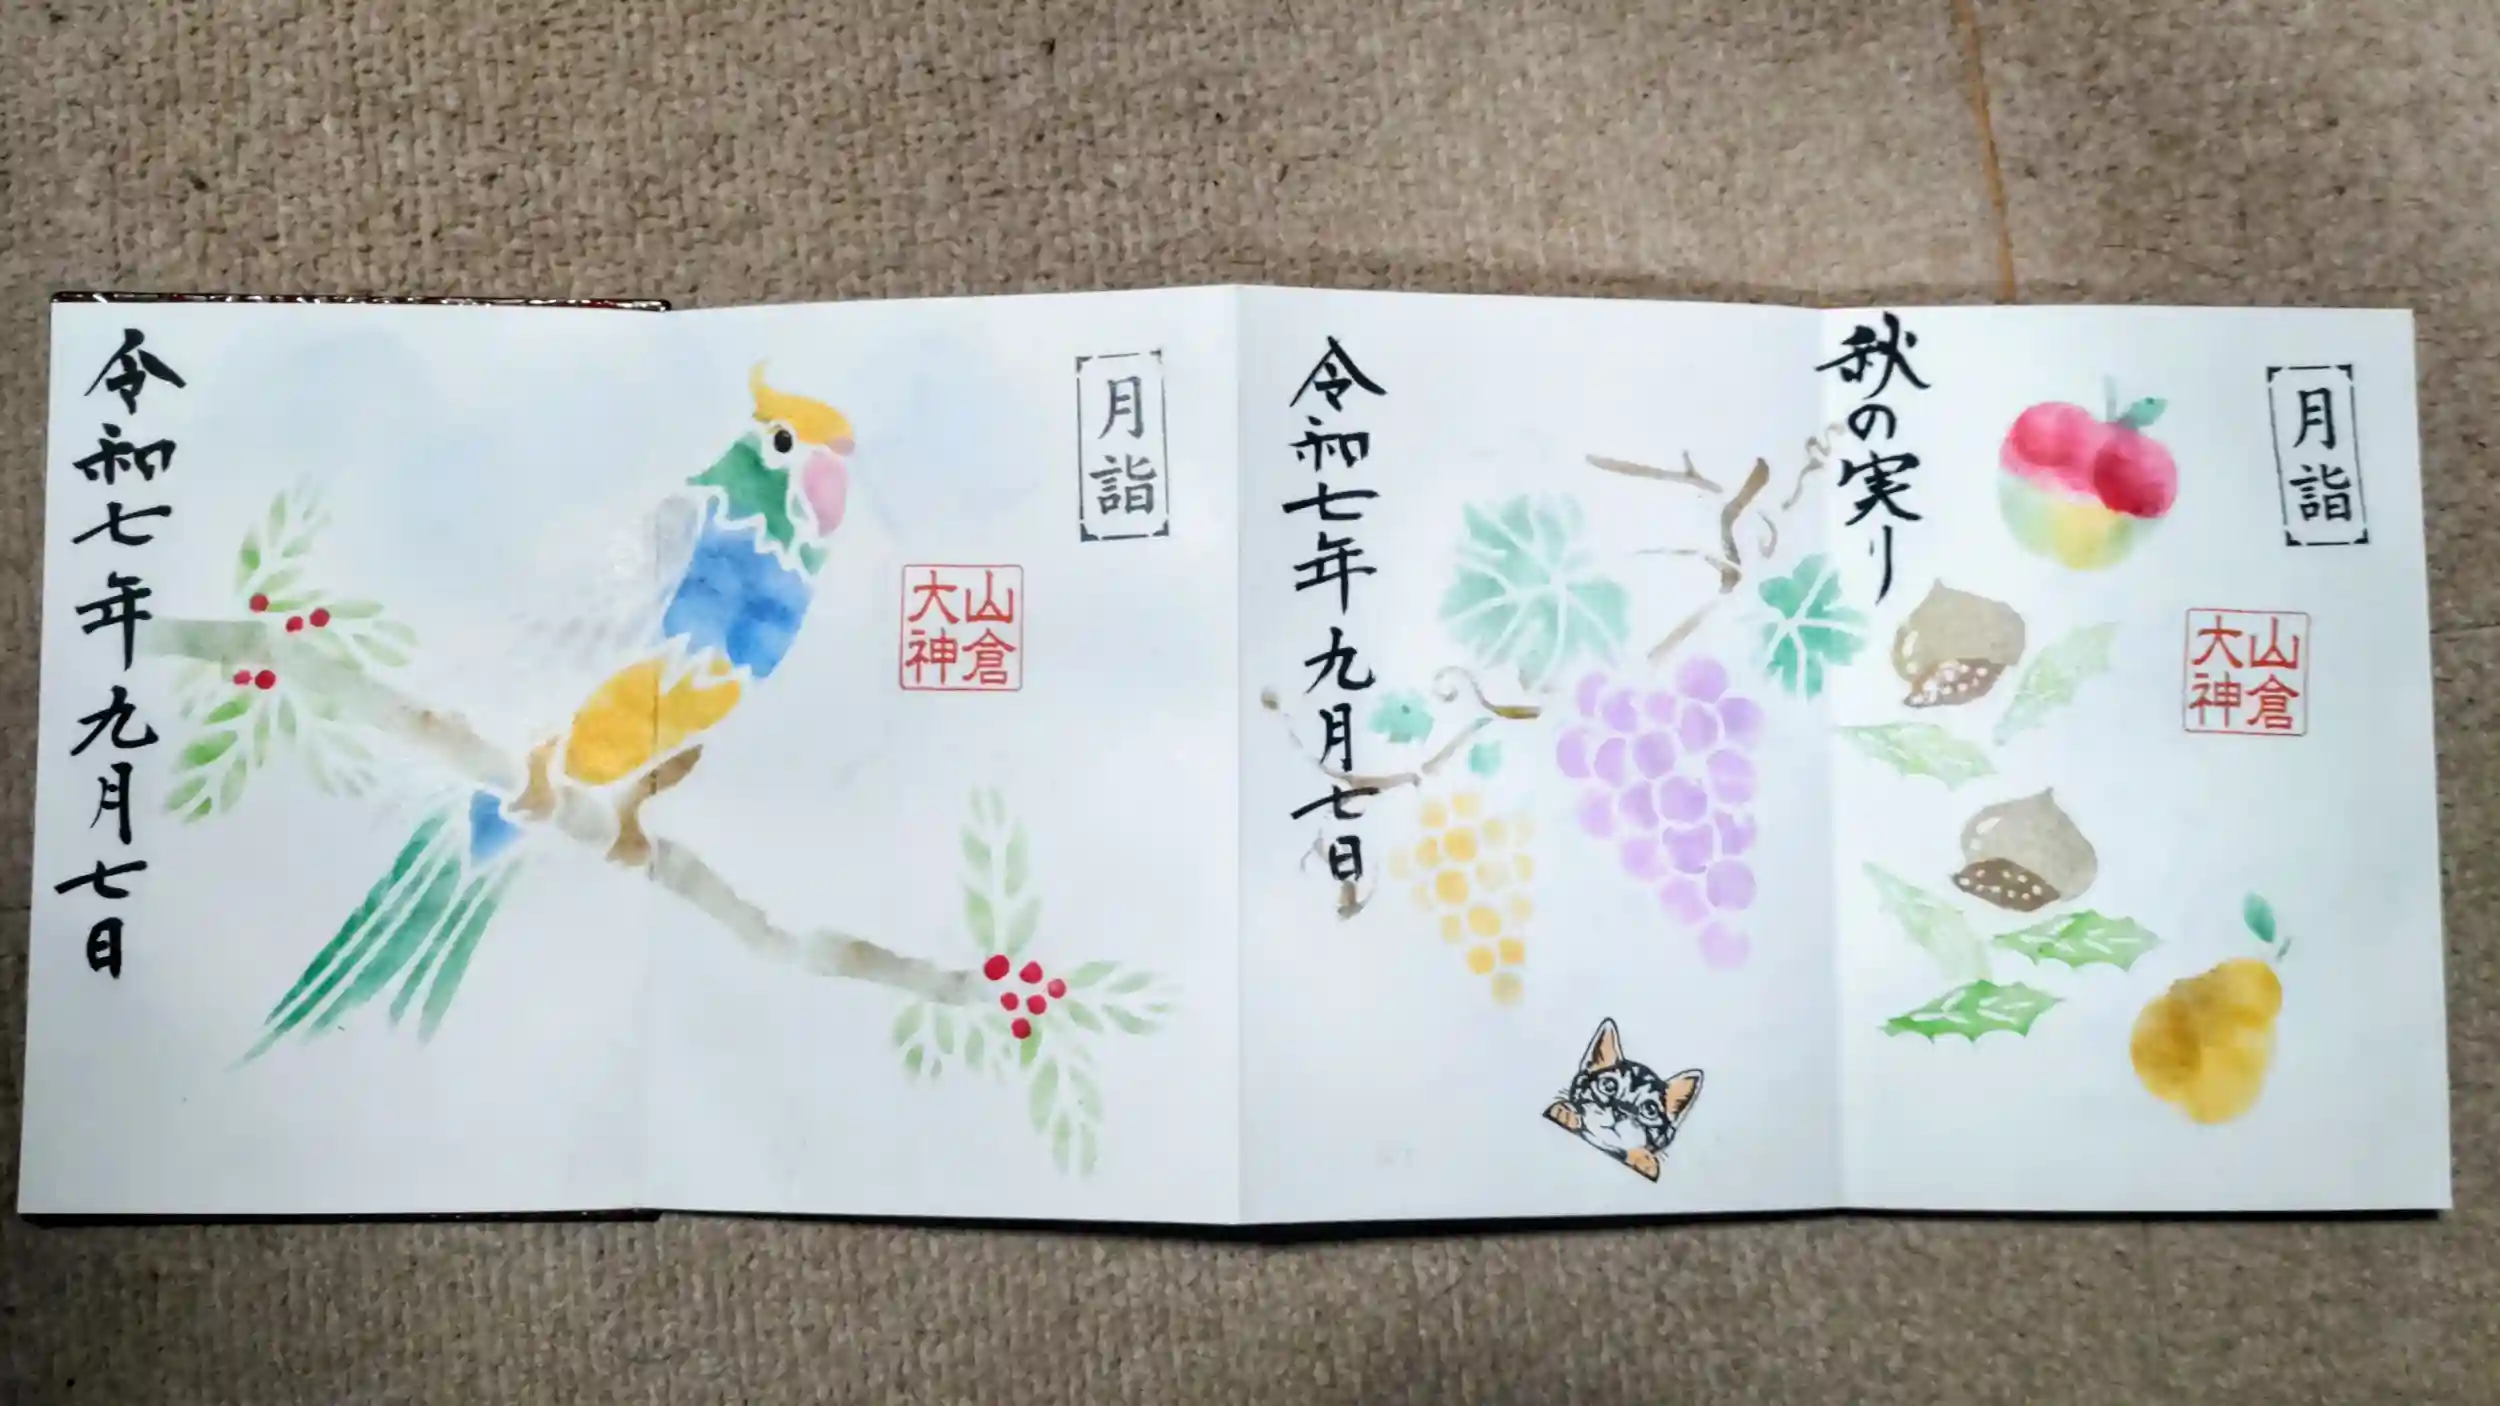 月詣
山倉
大神
秋の実り
令和七年九月七日
月詣
山倉
大神
令和七年九月七日